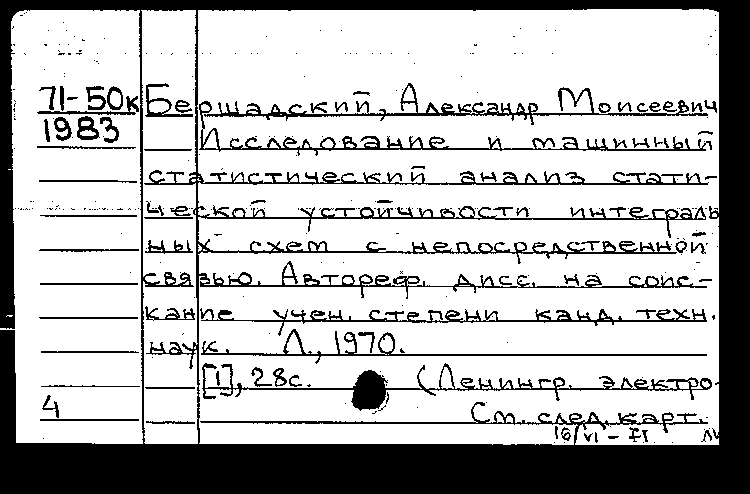 71-50к Бершадский, Александр Моисеевич
1983 Исследование и машинный
статистический анализ стати-
ческой устойчивости интеграль
ных схем с непосредственной
связью. Автореф. дисс. на соис-
кание учен. степени канд. техн.
наук. Л., 1970.
[1], 28с. (Ленингр. электро-
4 См. след. карт.
16/VI -